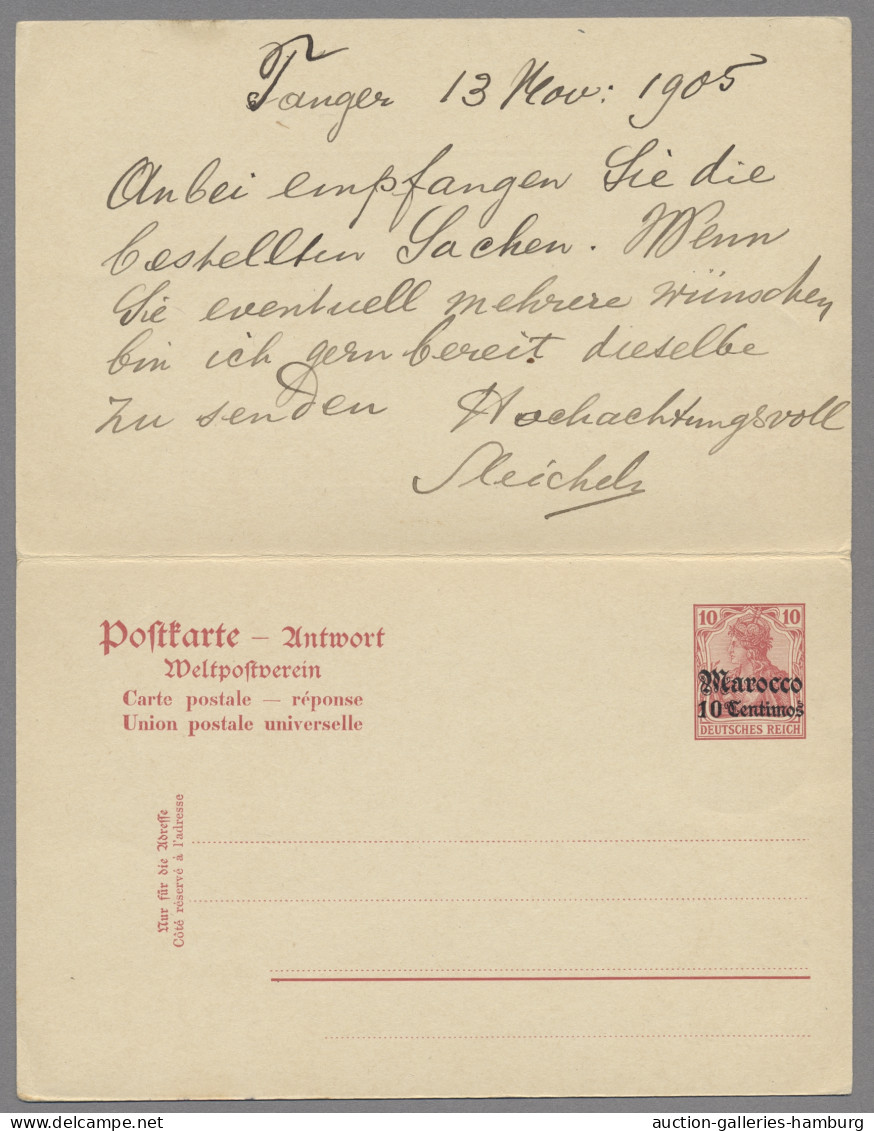 Tanger 13 Nov: 1905
Anbei empfangen Sie die
bestellten Sachen. Wenn
Sie eventuell mehrere wünschen,
bin ich gern bereit dieselbe
zu senden Hochachtungsvoll
Postkarte – Antwort
Weltpostverein
Carte postale — réponse
Union postale universelle
10 10
Marocco
10 Centimos
DEUTSCHES REICH
Nur für die Adresse
Côté réservé à l'adresse
auction-galleries-hamburg